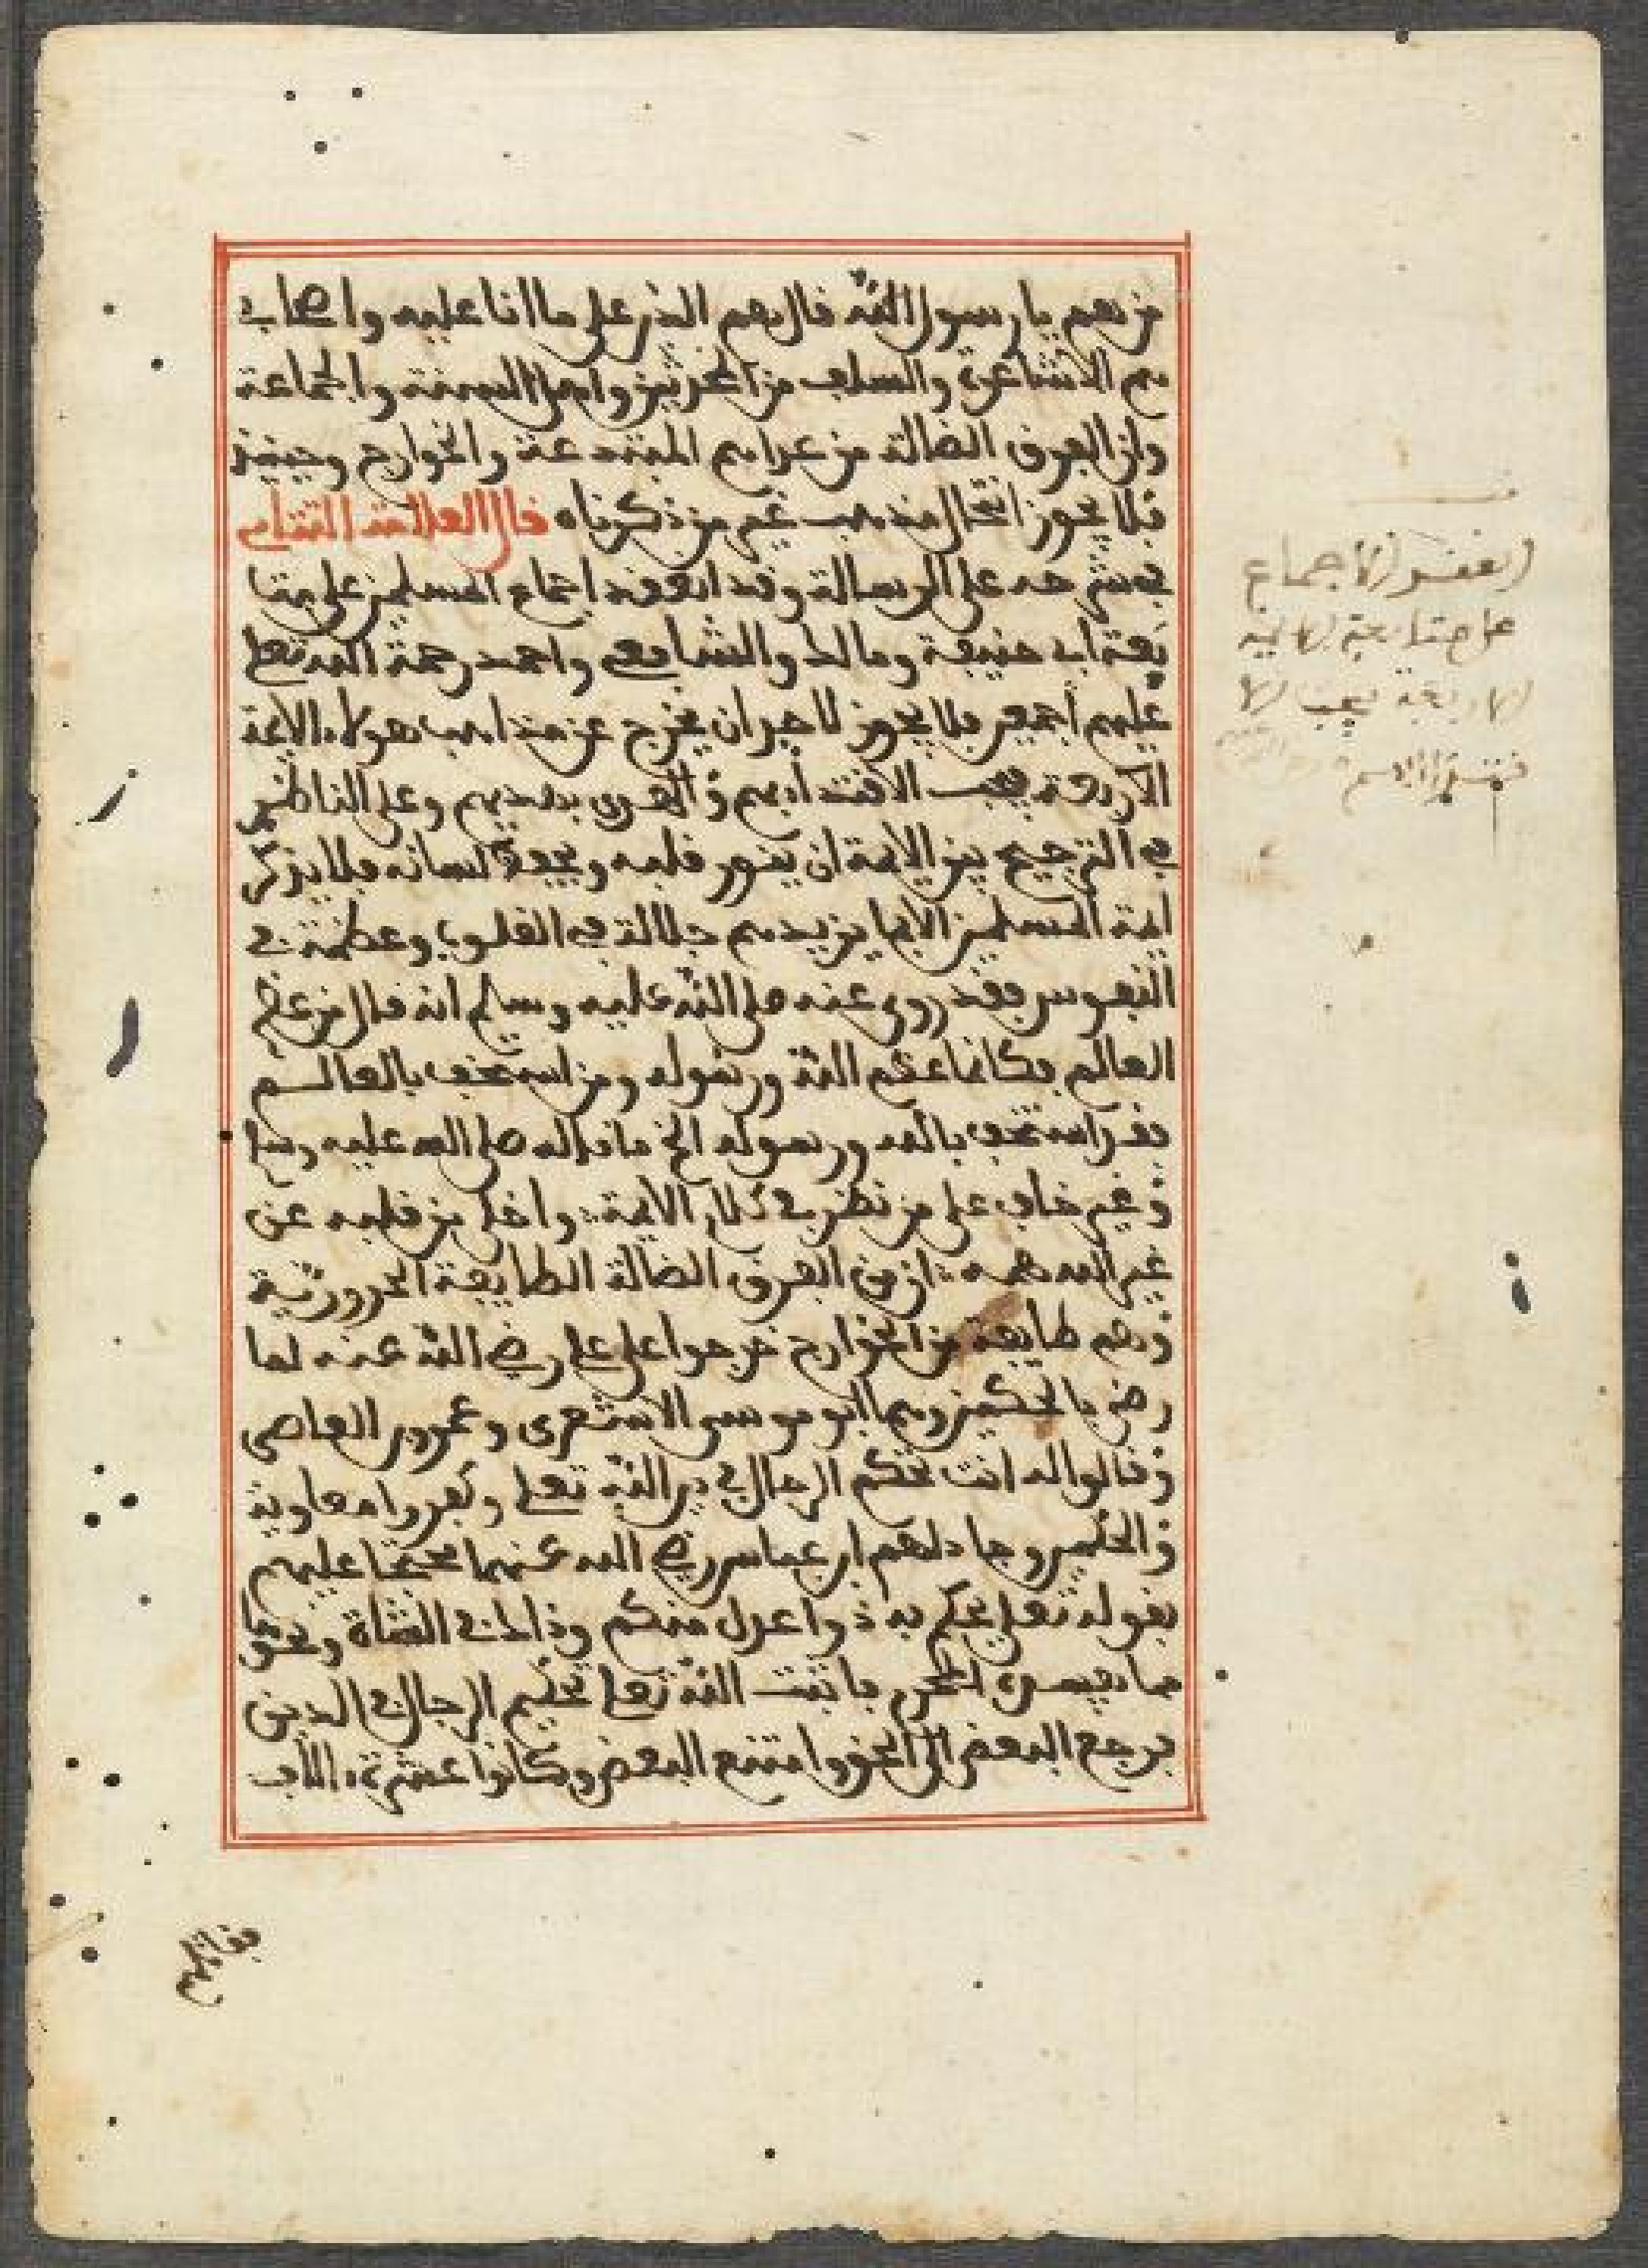 من هم يا رسول الله قال هم الذين على ما انا عليه واصحابي
هم الاشاعرة والسلف من المحدثين واهل السنة والجماعة
وان الفرق الضالة من عداهم المبتدعة والخوارج وحينئذ
فلا يجوز انتحال مذهب غير من ذكرناه قال العلامة التتائي
في شرحه على الرسالة وقد انعقد اجماع المسلمين على متا
بعة ابي حنيفة ومالك والشافعي واحمد رحمة الله تعلى
عليهم اجمعين فلا يجوز لاحد ان يخرج عن مذاهب هولاء الايمة
الاربعة فيجب الاقتداء بهم والهدى بهديهم وعلى الناظر
في الترجيح بين الايمة ان ينور قلبه ويحفظ لسانه فلا يذكر
ايمة المسلمين الا بما يزيدهم جلالة في القلوب وعظمة في
النفوس فقد روى عنه صلى الله عليه وسلم انه قال من عظم
العالم فكانما عظم الله ورسوله ومن استخف بالعالم
فقد استخف بالله ورسوله الخ ما قاله صلى الله عليه وسلم
وغير خاف على من نظر في كلام الايمة واخلى من قلبه عن
غير الله همه ان من الفرق الضالة الطايفة الحرورية
وهم طايفة من الخوارج خرجوا على علي رضي الله عنه لما
رضي بالحكمين وهما ابو موسى الاشعرى وعمرو بن العاصى
وقالوا له انت تحكم الرجال في دين الله تعلى وكفروا معاوية
والحكمين وجادلهم ابن عباس رضي الله عنهما محتجا عليهم
بقوله تعلى يحكم به ذوا عدل منكم وذالك في الشاة ونحوها
مما يصيده المحرم فاثبت الله تعلى تحكيم الرجال في الدين
فرجع البعض الى الحق وامتنع البعض وكانوا عشرة الاف
انعقد الاجماع
على متابعة الايمة
الاربعة فيجب الا
فقاتلهم